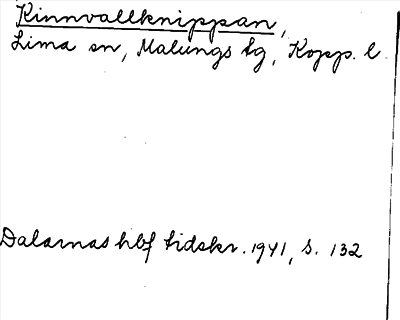 Kinnvallknippan,
Lima sn, Malungs tg, Kopp. l.
Dalarnas hbf tidskr. 1941, s. 132